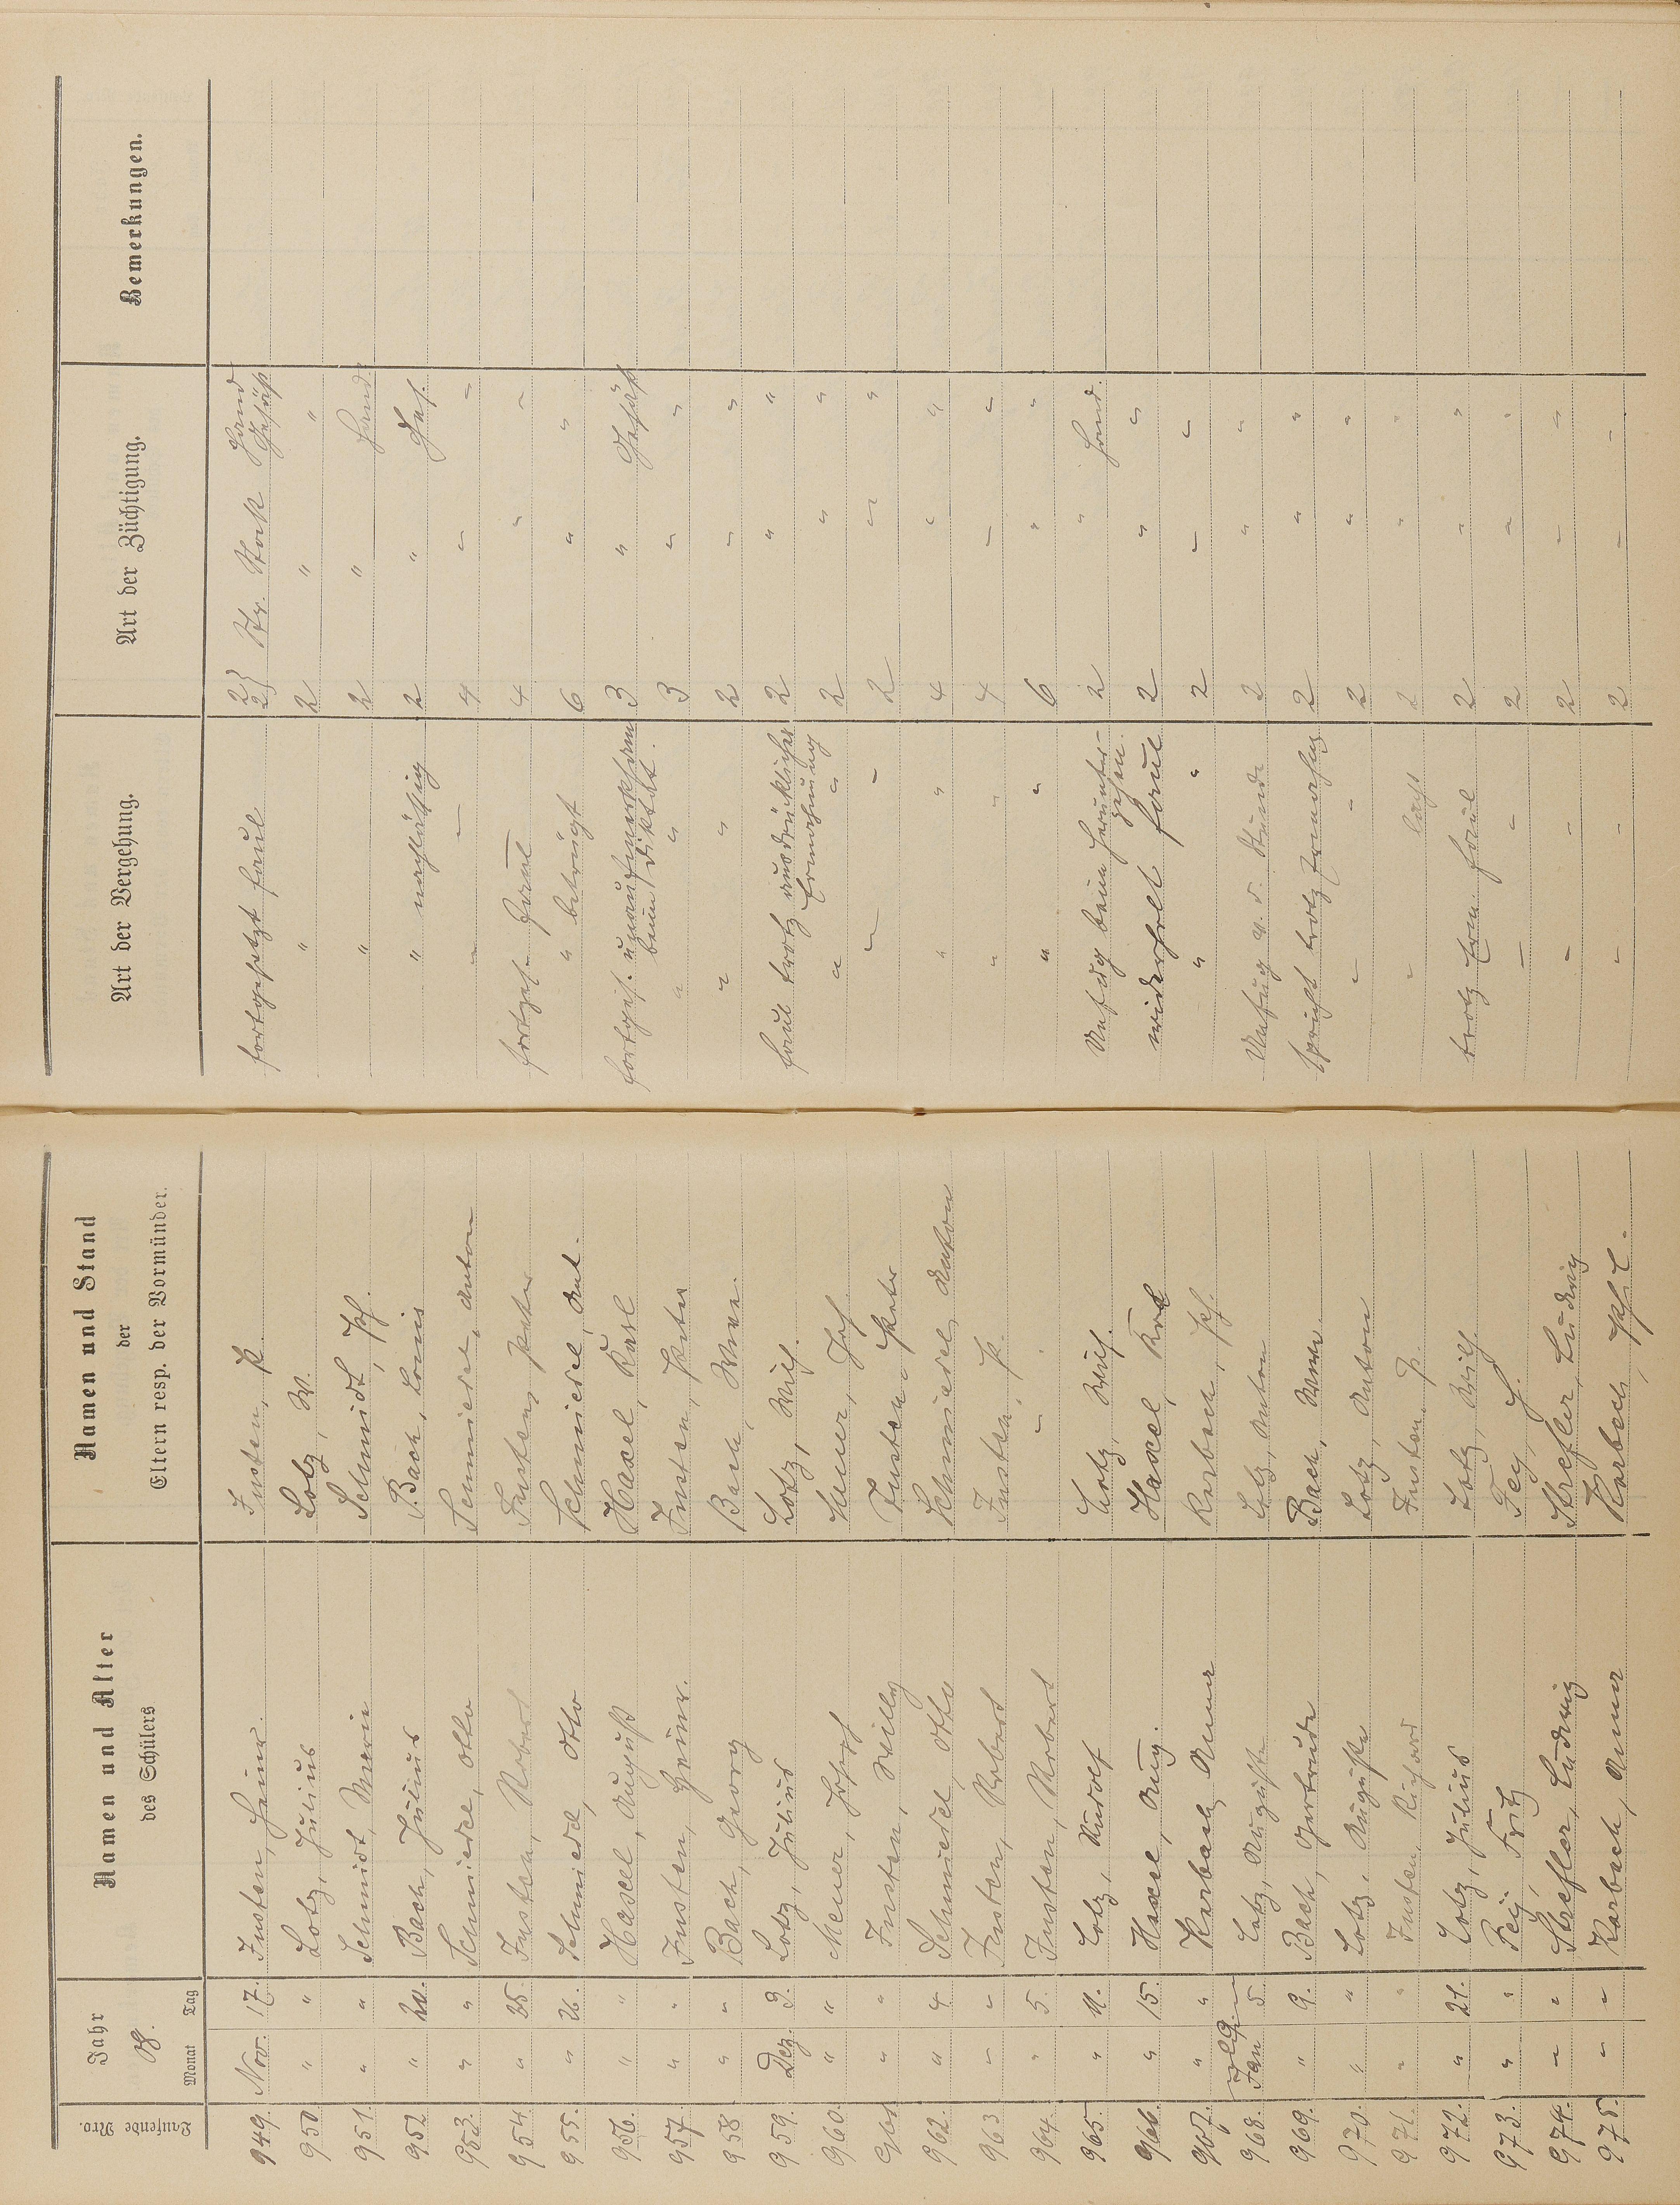 Laufende Nro. Jahr 08. Monat Tag Namen und Alter des Schülers Namen und Stand der Eltern resp. der Vormünder. Art der Vergehung. Art der Züchtigung. Bemerkungen.
949. Nov. 17. Fusten, Heinr. Fusten, P. fortgesetzt faul 2 2} Str. Stock Hand Gesäß
950 " " Lotz, Julius Lotz, W. " 2 " "
951. " " Schmidt, Marie Schmidt, Ph. " 2 " Hand
952 " 20. Bach, Julius Bach, Louis " nachlässig 2 " Ges.
953. " " Schmiedel, Otto Schmiedel, Anton " " 4 " "
954 " 25. Fusten, Robert Fusten, Peter fortges. faul 4 " "
955. " 26. Schmiedel, Otto Schmiedel, Ant. " betrügt 6 " "
956. " " Haxel, August Haxel, Karl fortges. unaufmerksam beim Diktat. 3 " Gesäß
957. " " Fusten, Heinr. Fusten, Peter " " 3 " "
958 " " Bach, Georg Bach, Wwe. " " 2 " "
959. Dez. 3. Lotz, Julius Lotz, Wilh. faul trotz ausdrücklicher Ermahnung 2 " "
960. " " Meuer, Josef Meuer, Jos. " " 2 " "
961 " " Fusten, Willy Fusten, Peter " " 2 " "
962. " 4. Schmiedel Otto Schmiedel, Anton " " 4 " "
963 " " Fusten, Robert Fusten, P. " " 4 " "
964. " 5. Fusten, Robert " " " " 6 " "
965. " 11. Lotz, Rudolf Lotz, Wilh. Unfug beim Heruntergehen. 2 " Hand.
966. " 15. Haxel, Aug. Haxel, Karl widerholt faul 2 " "
967. " " Korbach, Anna Korbach, Ph. " " 2 " "
1909.
968. Jan 5. Lotz, Auguste Lotz, Anton Unfug a. d. Stunde 2 " "
969. " 9. Bach, Gertrude Bach, Wwe. spricht trotz Ermahng 2 " "
970. " " Lotz, Auguste Lotz, Anton " " 2 " "
971. " " Fusten, Richard Fusten, P. " lacht 2 " "
972. " 21. Lotz, Julius Lotz, Wilh. trotz Erm. faul 2 " "
973. " " Fey, Fritz Fey, H. " " 2 " "
974. " " Strefler, Ludwig Strefler, Ludwig " " 2 " "
975. " " Korbach, Anna Korbach, Phil. " " 2 " "